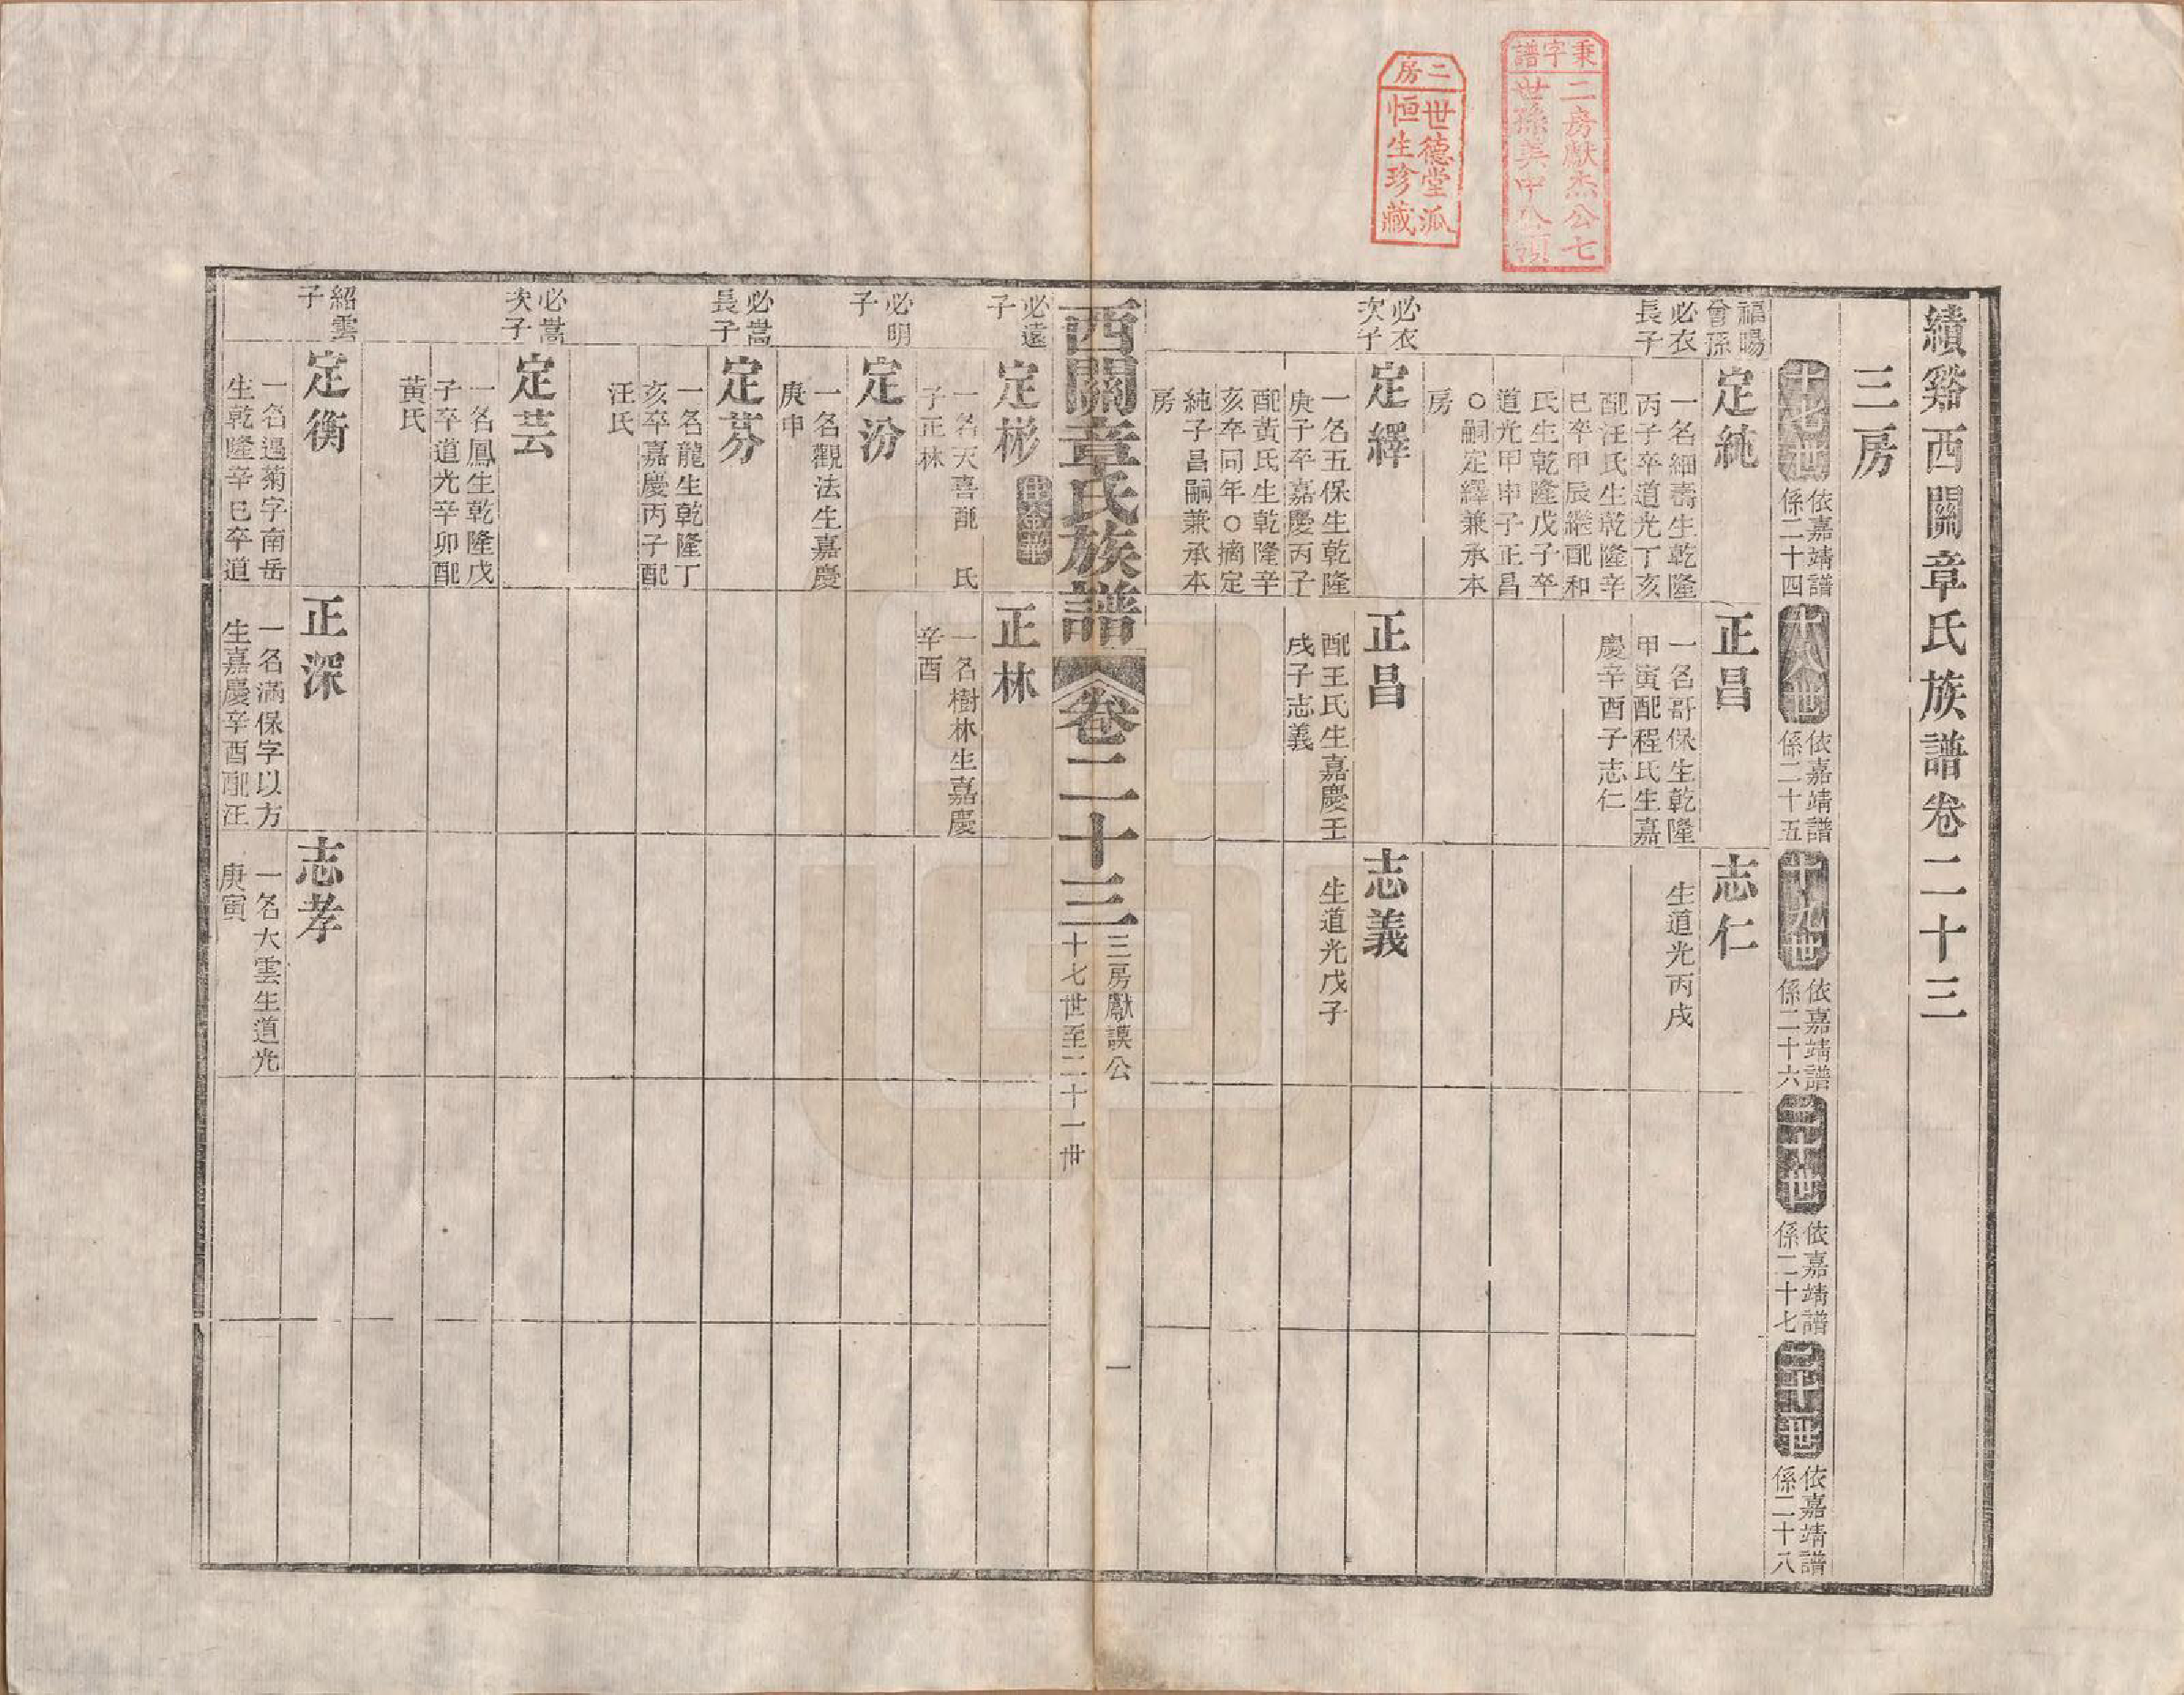 績谿西關章氏族譜卷二十三
三房
十七世
依嘉靖譜
係二十四
十八世
依嘉靖譜
係二十五
十九世
依嘉靖譜
係二十六
二十世
依嘉靖譜
係二十七
二十一世
依嘉靖譜
係二十八
福暘
曾孫
必衣
長子
定純
一名細壽生乾隆
丙子卒道光丁亥
配汪氏生乾隆辛
巳卒甲辰繼配和
氏生乾隆戊子卒
道光甲申子正昌
○嗣定繹兼承本
房
正昌
一名哥保生乾隆
甲寅配程氏生嘉
慶辛酉子志仁
志仁
生道光丙戌
必衣
次子
定繹
一名五保生乾隆
庚子卒嘉慶丙子
配黃氏生乾隆辛
亥卒同年○摘定
純子昌嗣兼承本
房
正昌
配王氏生嘉慶壬
戌子志義
志義
生道光戊子
西關章氏族譜
卷二十三
三房獻謨公
十七世至二十一世
一
必遠
子
定彬
住金華
一名天喜配　氏
子正林
正林
一名樹林生嘉慶
辛酉
必明
子
定汾
一名觀法生嘉慶
庚申
必嵩
長子
定芬
一名龍生乾隆丁
亥卒嘉慶丙子配
汪氏
必嵩
次子
定芸
一名鳳生乾隆戊
子卒道光辛卯配
黃氏
紹雲
子
定衡
一名遇菊字南岳
生乾隆辛巳卒道
正深
一名滿保字以方
生嘉慶辛酉配汪
志孝
一名大雲生道光
庚寅
秉字譜
二房獻杰公七
世孫美中公領
二房
世德堂派
恒生珍藏